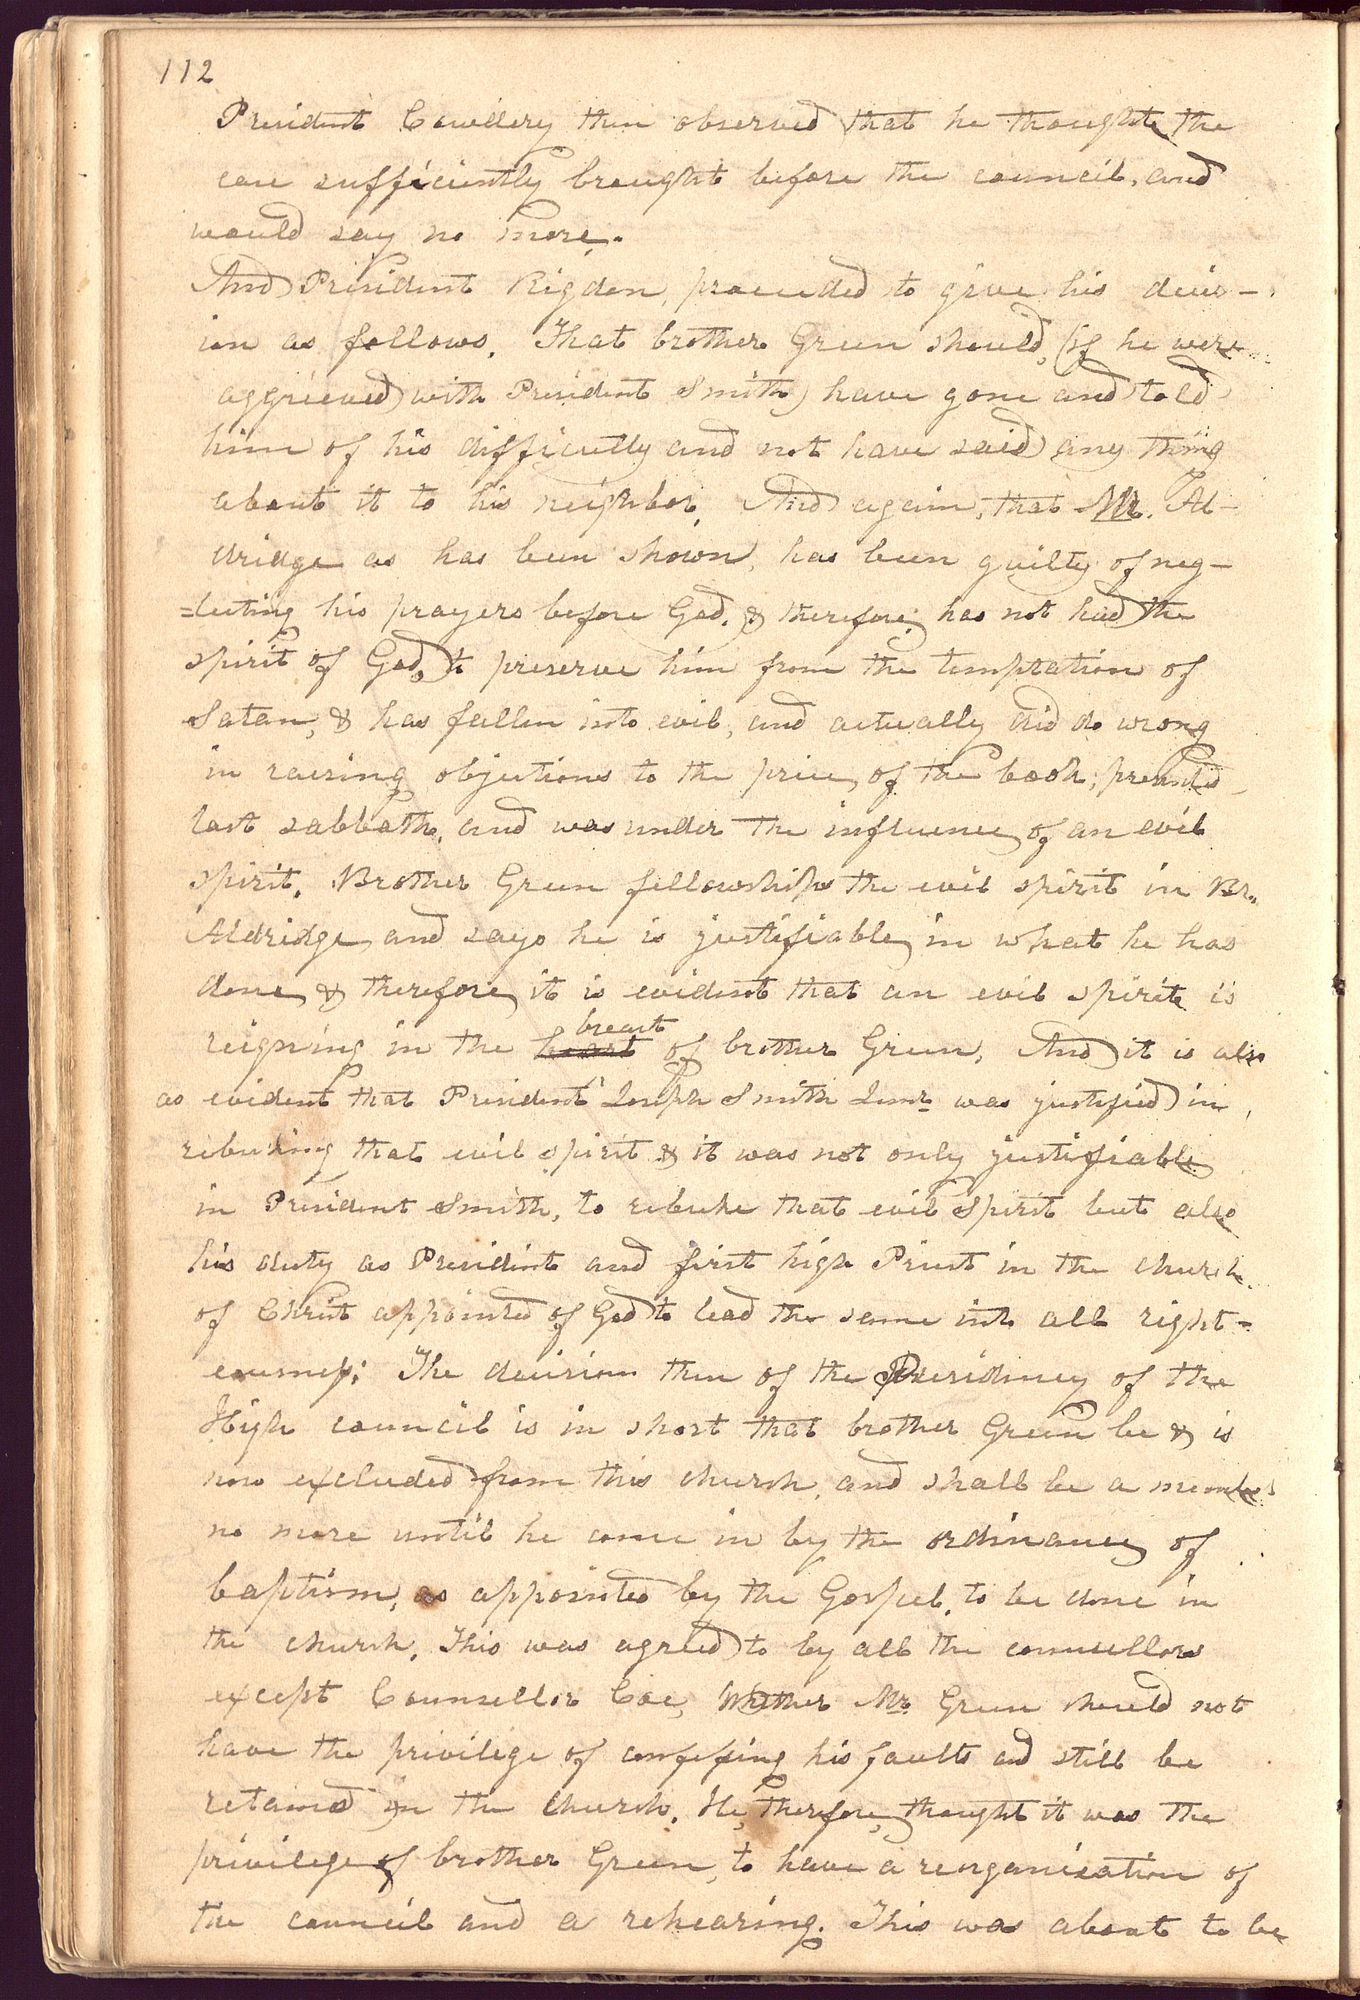 112
President Cowdery then observed that he thought the
case sufficiently brought before the council, and
would say no more.
And President Rigdon, proceeded to give his decis-
ion as follows. That brother Green should, (if he were
aggrieved with President Smith) have gone and told
him of his difficulty and not have said any thing
about it to his neighbor. And again, that Mr. Al-
dridge as has been shown, has been guilty of neg-
=lecting his prayers before God, & therefore, has not had the
spirit of God, to preserve him from the temptation of
Satan, & has fallen into evil, and actually did do wrong
in raising objections to the price, of the book, presented
last sabbath, and was under the influence of an evil
spirit. Brother Green fellowships the evil spirit in Br.
Aldridge, and says he is justifiable in what he has
done, & therefore, it is evident that an evil spirit is
reigning in the heart breast of brother Green. And it is also
as evident that President Joseph Smith Junr. was justified in
rebuking that evil spirit & it was not only justifiable
in President Smith, to rebuke that evil spirit but also
his duty as President and first high Priest in the church
of Christ appointed of God to lead the same into all right-
eousness: The decision then of the Presidency of the
High council is in short that brother Green be & is
now excluded from this church, and shall be a member
no more until he come in by the ordinance of
baptism, as appointed by the Gospel, to be done in
the church. This was agreed to by all the counsellors
except Counsellor Coe, Whether Mr. Green should not
have the privilige of confessing his faults and still be
retained in the church. He, therefore, thought it was the
privilege of brother Green, to have a reorganization of
the council and a rehearing. This was about to be